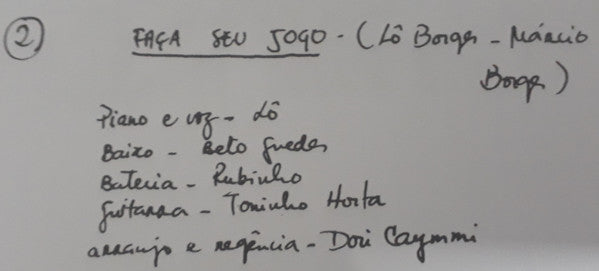 2) FAÇA SEU JOGO - (Lô Borges - Márcio
Borges)
Piano e voz - Lô
Baixo - Beto Guedes
Bateria - Rubinho
Guitarra - Toninho Horta
arranjo e regência - Dori Caymmi